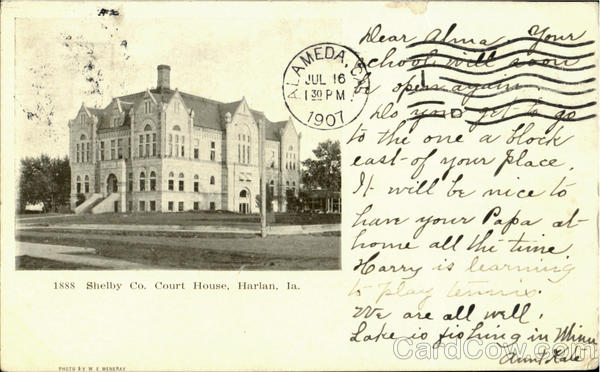 ALAMEDA, CAL.
JUL 16
1 30 PM
1907
Dear Alma. Your
school will soon
be open again.
Do you get to go
to the one a block
east of your place.
It will be nice to
have your Papa at
home all the time
Harry is learning
to play tennis.
We are all well.
Lake is fishing in Minn
Aunt Kate
1888 Shelby Co. Court House, Harlan, Ia.
PHOTO BY W. E. MENERAY
CardCow.com